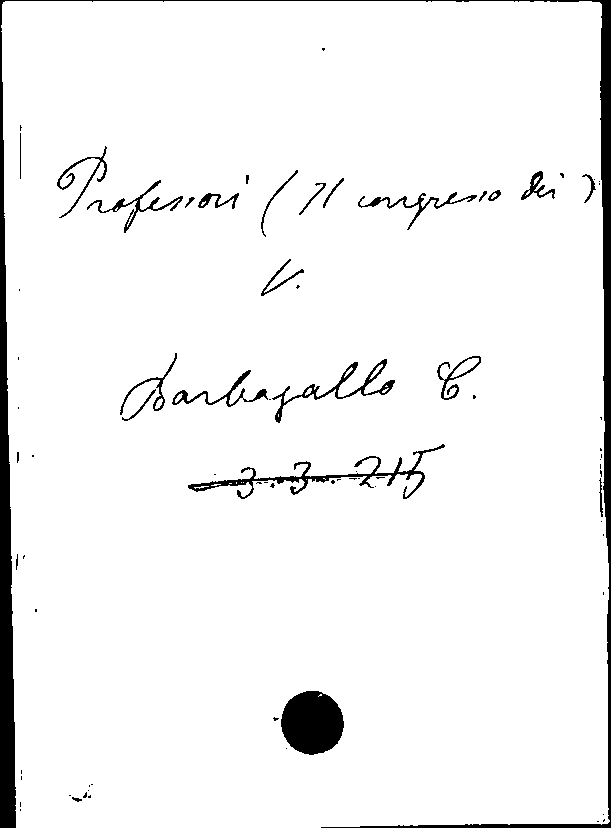 Professori (Il congresso dei)
V.
Barbagallo C.
3.3.215